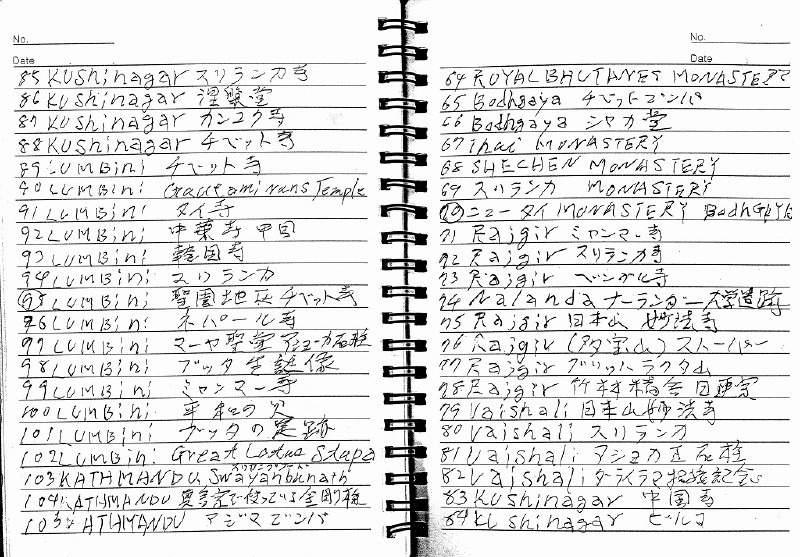 No.
Date
85 KUShinagar スリランカ寺
86 KUShinagar 涅槃堂
87 KUShinagar カンコク寺
88 KUShinagar チベット寺
89 LUMBini チベット寺
90 LUMBini Gautami nuns Temple
91 LUMBini タイ寺
92 LUMBini 中華寺 中国
93 LUMBini 韓国寺
94 LUMBini スリランカ
95 LUMBini 聖園地区チベット寺
96 LUMBini ネパール寺
97 LUMBini マーヤ聖堂アショーカ石柱
98 LUMBini ブッタ生誕像
99 LUMBini ミャンマー寺
100 LUMBini 平和の火
101 LUMBini ブッタの足跡
102 LUMBini Great Lotus Stupa
103 KATHMANDU, Swayanbunath
104 KATHMANDU
105 KATHMANDU アジマ
No.
Date
64 ROYAL BHUTANES MONASTERY
65 Bodhgaya チベットゴンパ
66 Bodhgaya シャカ堂
67 Thai MONASTERY
68 SHECHEN MONASTERY
69 スリランカ MONASTERY
70 ニュータイ MONASTERY BodhGAYA
71 Rajgir ミャンマー寺
72 Rajgir スリランカ寺
73 Rajgir ベンガル寺
74 Nalanda ナーランダー大学遺跡
75 Rajgir 日本山 妙法寺
76 Rajgir (多宝山) ストーパー
77 Rajgir
78 Rajgir 竹林精舎
79 Vaishali 日本山妙法寺
80 Vaishali スリランカ
81 Vaishali アショカ王石柱
82 Vaishali ダーライラマ
83 KUShinagar 中国寺
84 KUShinagar ビルマ